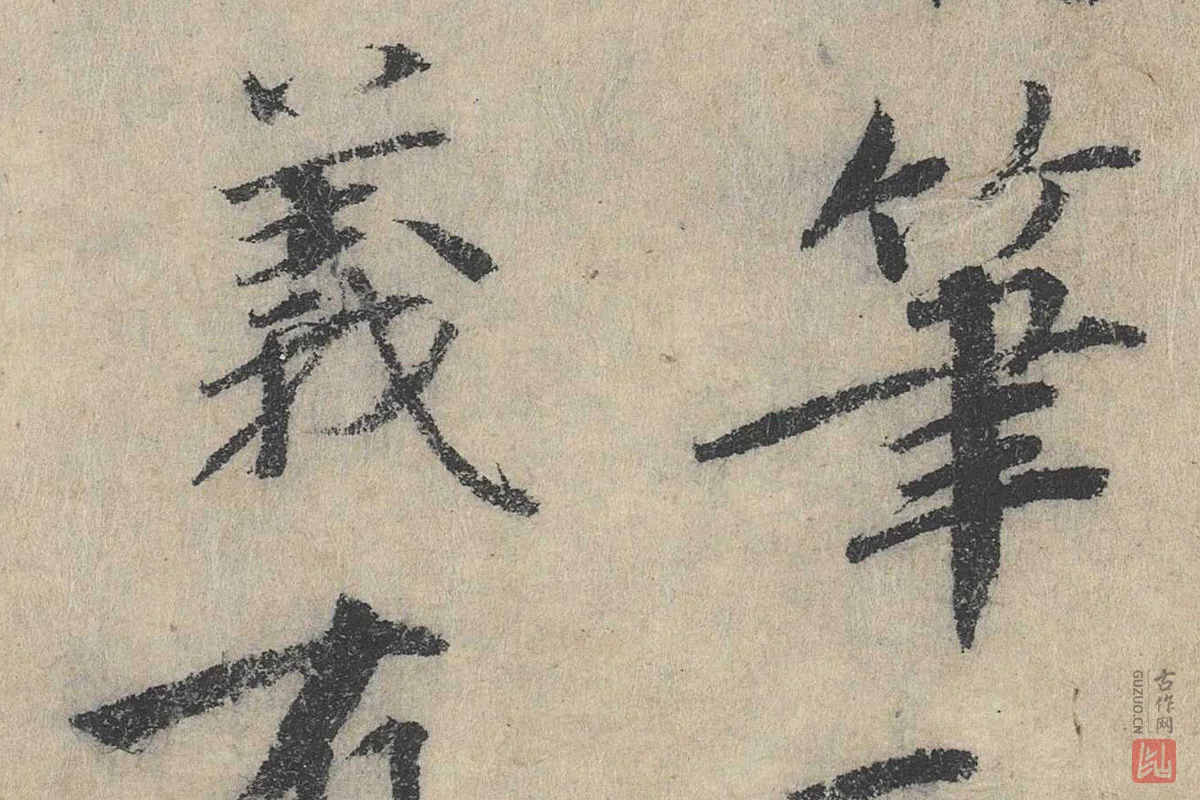 筆
義有
古作网
GUZUO.CN